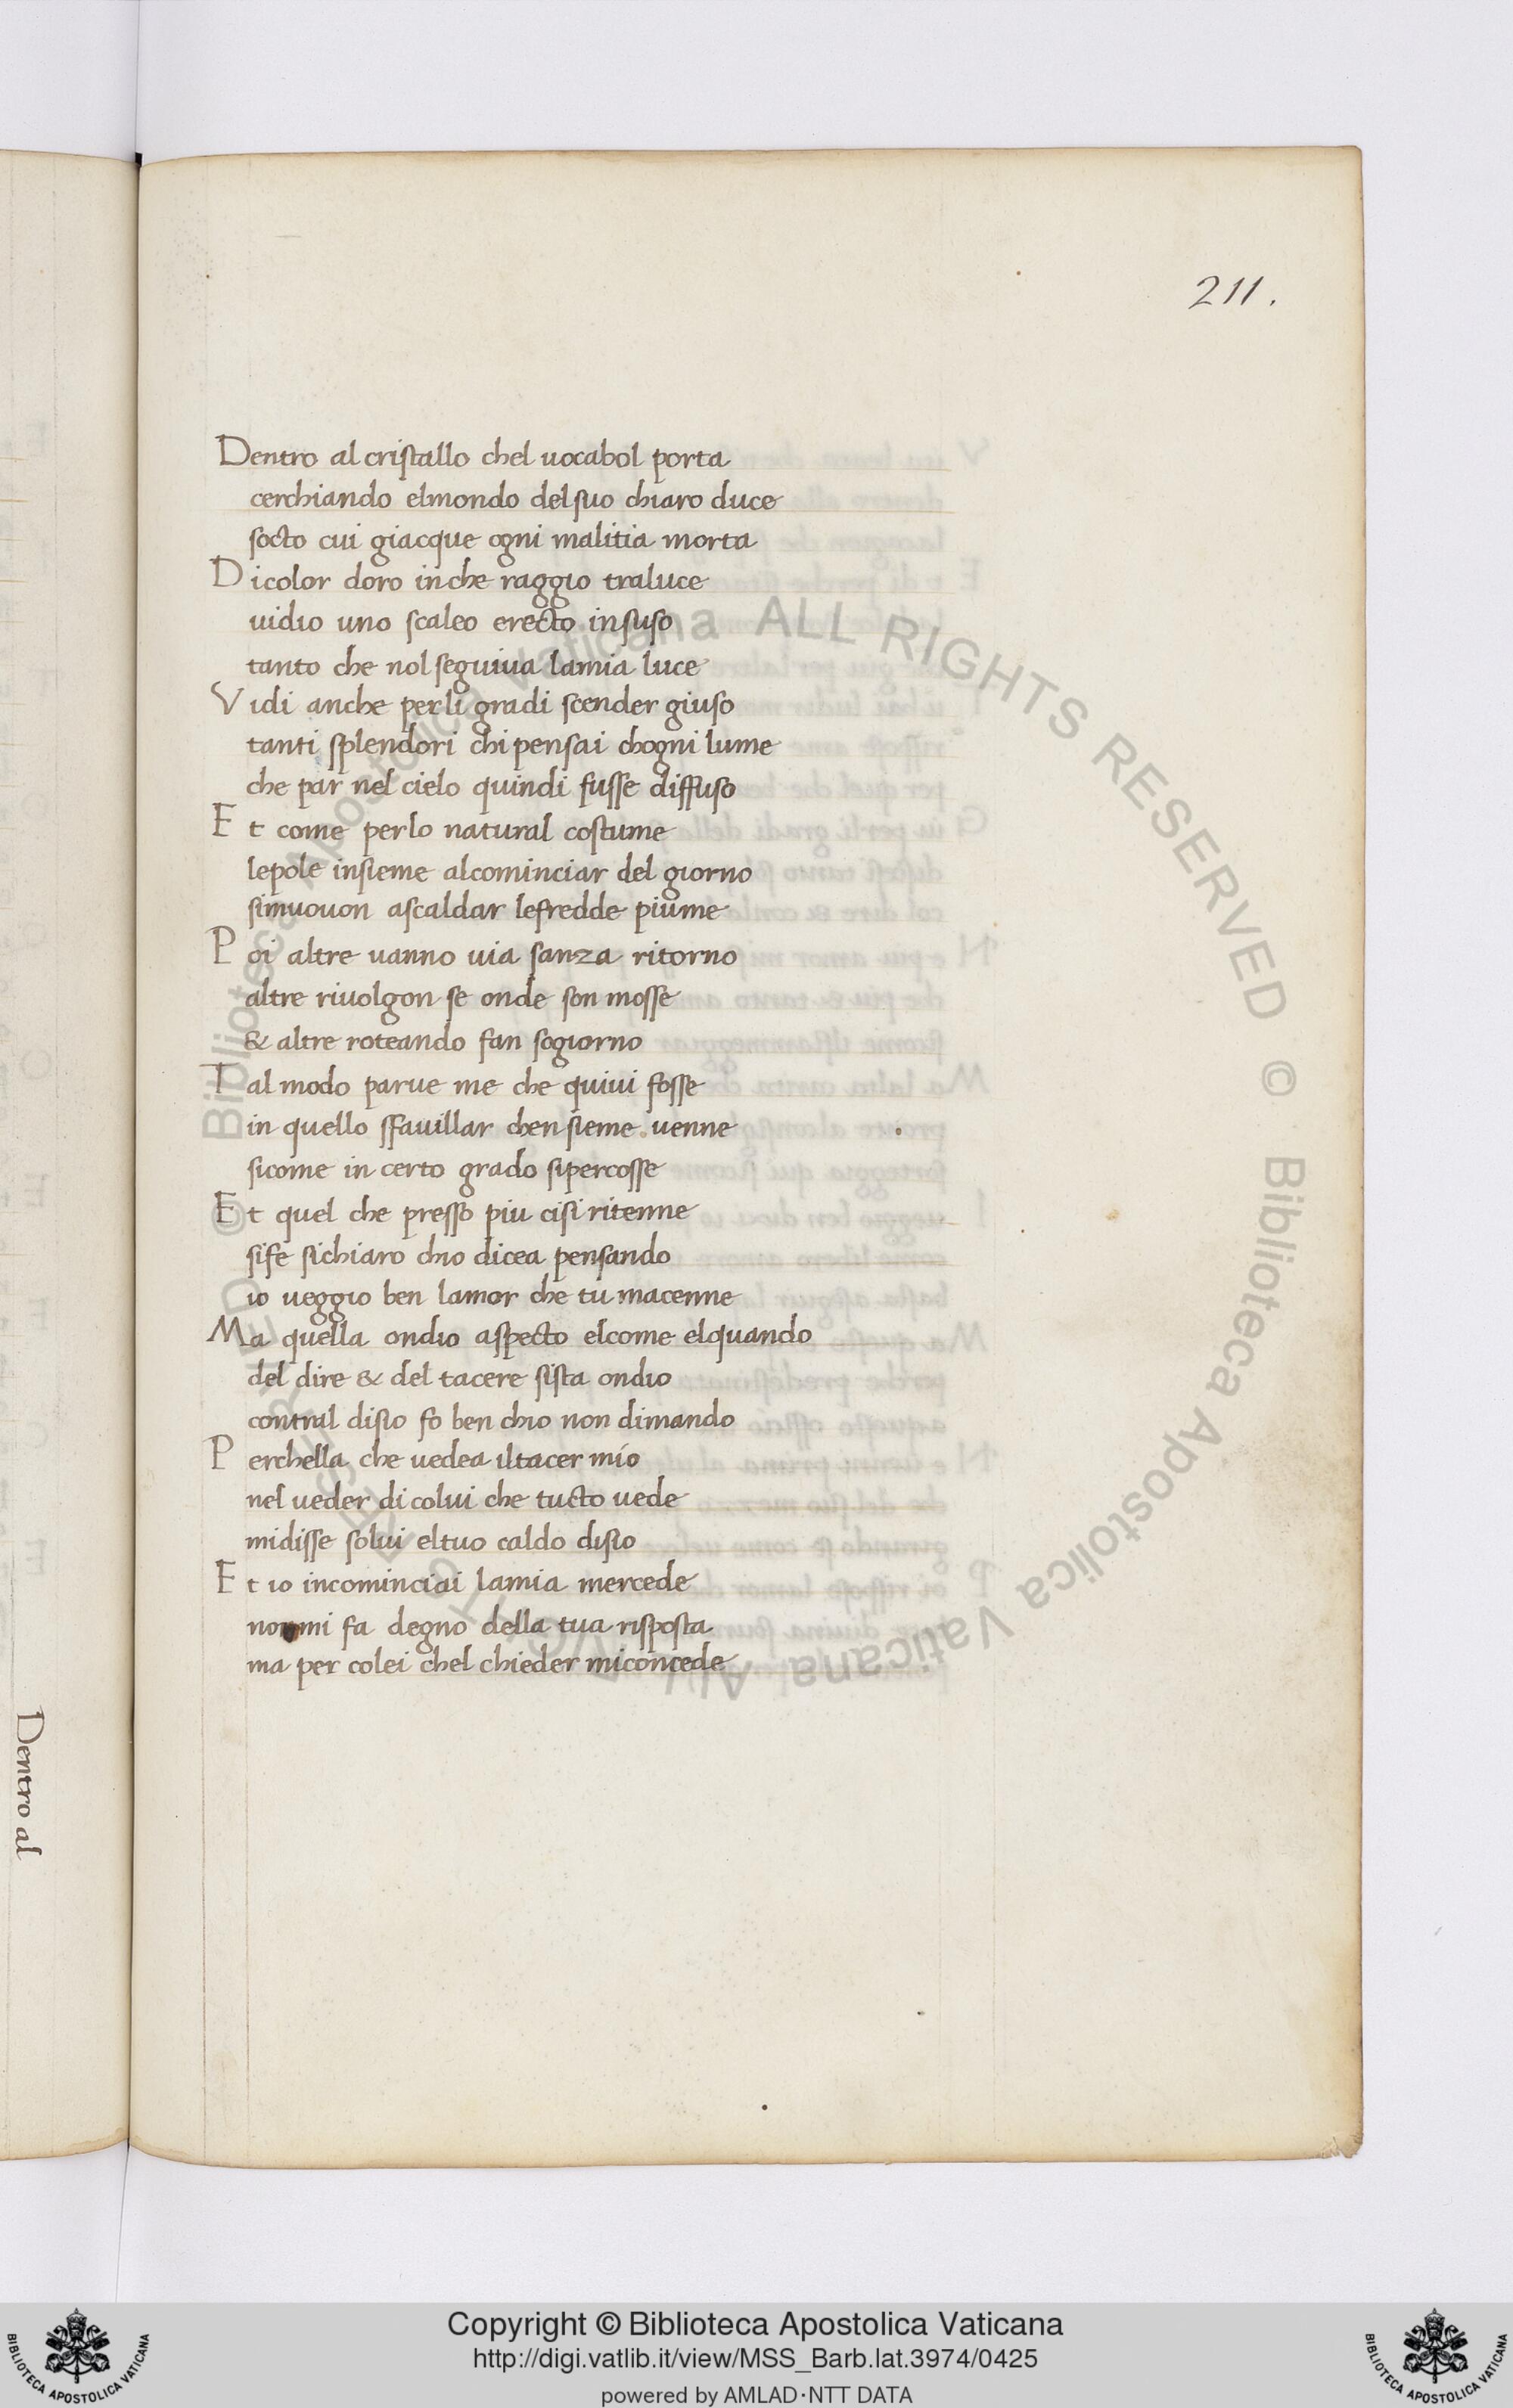 211.
Dentro al cristallo chel uocabol porta
cerchiando elmondo del suo chiaro duce
socto cui giacque ogni malitia morta
Dicolor doro inche raggio traluce
uidio uno scaleo erecto insuso
tanto che nol seguiua lamia luce
Vidi anche perli gradi scender giuso
tanti splendori chi pensai chogni lume
che par nel cielo quindi fusse diffuso
Et come perlo natural costume
lepole insieme alcominciar del giorno
simuouon ascaldar lefredde piume
Poi altre uanno uia sanza ritorno
altre riuolgon se onde son mosse
& altre roteando fan sogiorno
Tal modo parue me che quiui fosse
in quello sfauillar chensieme uenne
sicome in certo grado sipercosse
Et quel che presso piu cisi ritenne
sife sichiaro chio dicea pensando
io ueggio ben lamor che tu macenne
Ma quella ondio aspecto elcome elquando
del dire & del tacere sista ondio
contral disio fo ben chio non dimando
Perchella che uedea iltacer mio
nel ueder di colui che tucto uede
midisse solui eltuo caldo disio
Et io incominciai lamia mercede
nonmi fa degno della tua risposta
ma per colei chel chieder miconcede
Dentro al
© Biblioteca Apostolica Vaticana ALL RIGHTS RESERVED © Biblioteca Apostolica Vaticana ALL RIGHTS RESERVED
BIBLIOTECA APOSTOLICA VATICANA
Copyright © Biblioteca Apostolica Vaticana
http://digi.vatlib.it/view/MSS_Barb.lat.3974/0425
powered by AMLAD·NTT DATA
BIBLIOTECA APOSTOLICA VATICANA